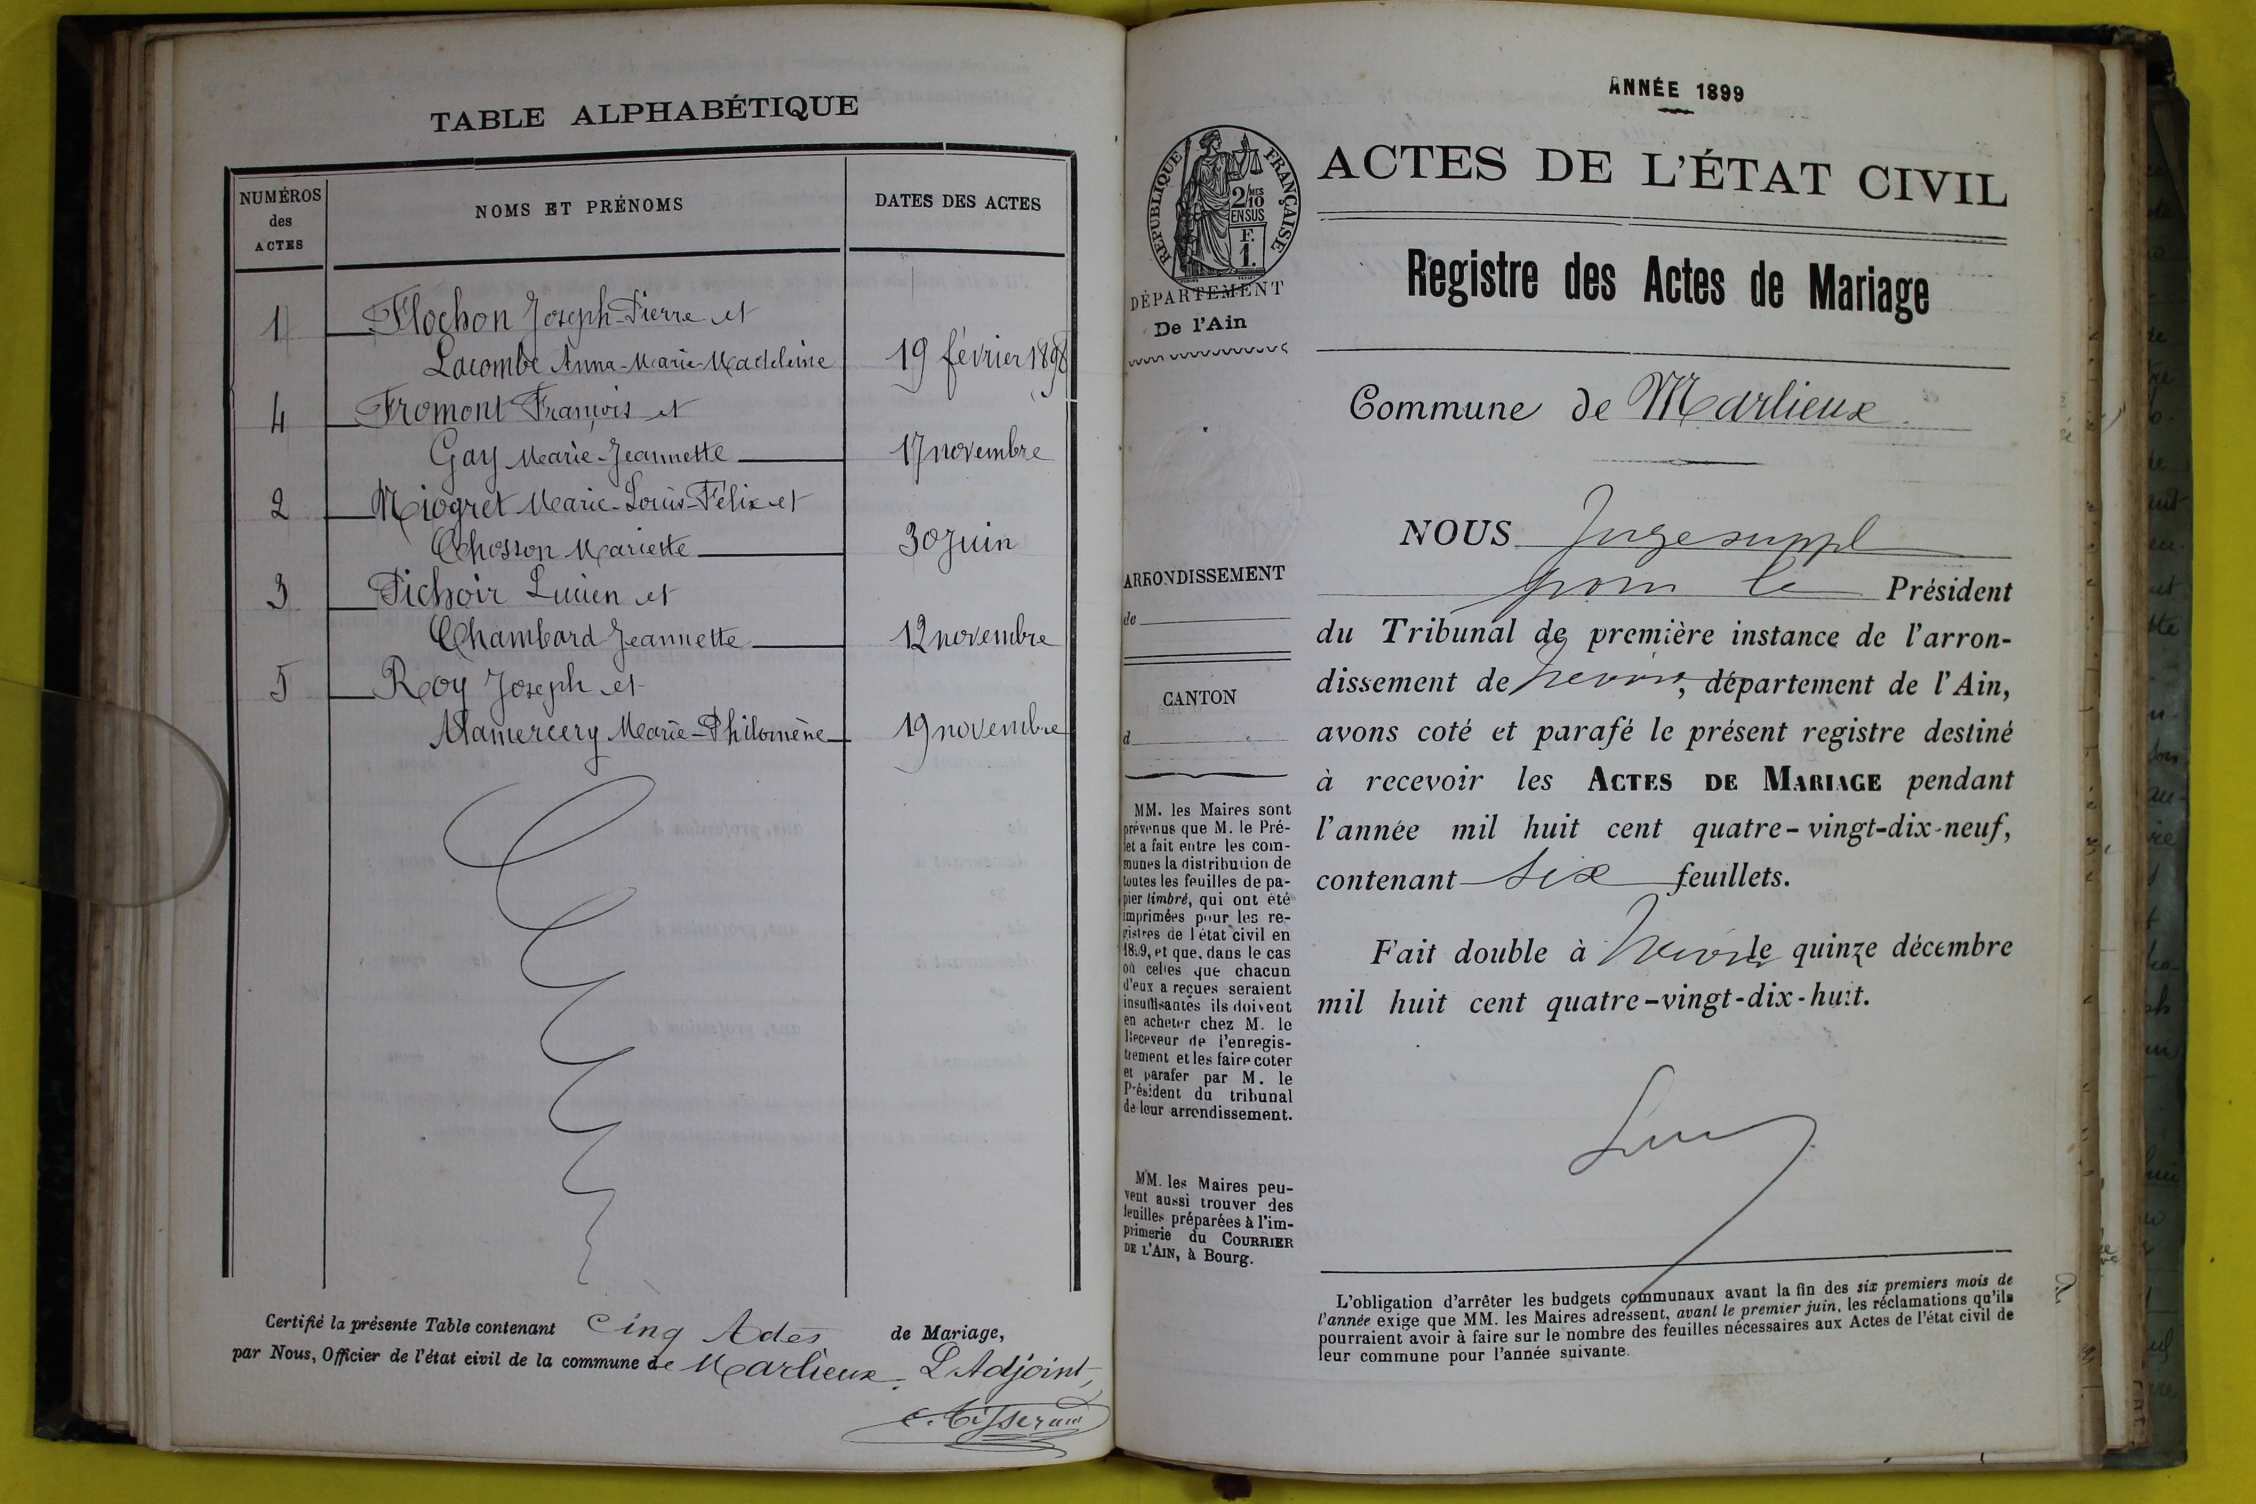 TABLE ALPHABÉTIQUE
NUMÉROS
des
ACTES
NOMS ET PRÉNOMS
DATES DES ACTES
1 Flochon Joseph-Pierre et
Lacombe Anna-Marie-Madeleine 19 février 1898
4 Fromont François et
Gay Marie-Jeannette 17 novembre
2 Miogret Marie-Louis-Félix et
Chosson Mariette 30 Juin
3 Pichoir Lucien et
Chambard Jeannette 12 novembre
5 Roy Joseph et
Mamercery Marie-Philomène 19 novembre
Certifié la présente Table contenant cinq Actes de Mariage,
par Nous, Officier de l'état civil de la commune de Marlieux. L'Adjoint,
C. Tisserand
ANNÉE 1899
RÉPUBLIQUE FRANÇAISE
2/10 MES
EN SUS
F.
1.
DÉPARTEMENT
De l'Ain
ARRONDISSEMENT
de
CANTON
d
MM. les Maires sont
prévenus que M. le Pré-
fet a fait entre les com-
munes la distribution de
toutes les feuilles de pa-
pier timbré, qui ont été
imprimées pour les re-
gistres de l'état civil en
1899, et que, dans le cas
où celles que chacun
d'eux a reçues seraient
insuffisantes ils doivent
en acheter chez M. le
Receveur de l'enregis-
trement et les faire coter
et parafer par M. le
Président du tribunal
de leur arrondissement.
MM. les Maires peu-
vent aussi trouver des
feuilles préparées à l'im-
primerie du COURRIER
DE L'AIN, à Bourg.
ACTES DE L'ÉTAT CIVIL
Registre des Actes de Mariage
Commune de Marlieux
NOUS Juge suppl
pour le Président
du Tribunal de première instance de l'arron-
dissement de Trévoux, département de l'Ain,
avons coté et parafé le présent registre destiné
à recevoir les ACTES DE MARIAGE pendant
l'année mil huit cent quatre-vingt-dix-neuf,
contenant six feuillets.
Fait double à Trévoux le quinze décembre
mil huit cent quatre-vingt-dix-huit.
L'obligation d'arrêter les budgets communaux avant la fin des six premiers mois de
l'année exige que MM. les Maires adressent, avant le premier juin, les réclamations qu'ils
pourraient avoir à faire sur le nombre des feuilles nécessaires aux Actes de l'état civil de
leur commune pour l'année suivante.